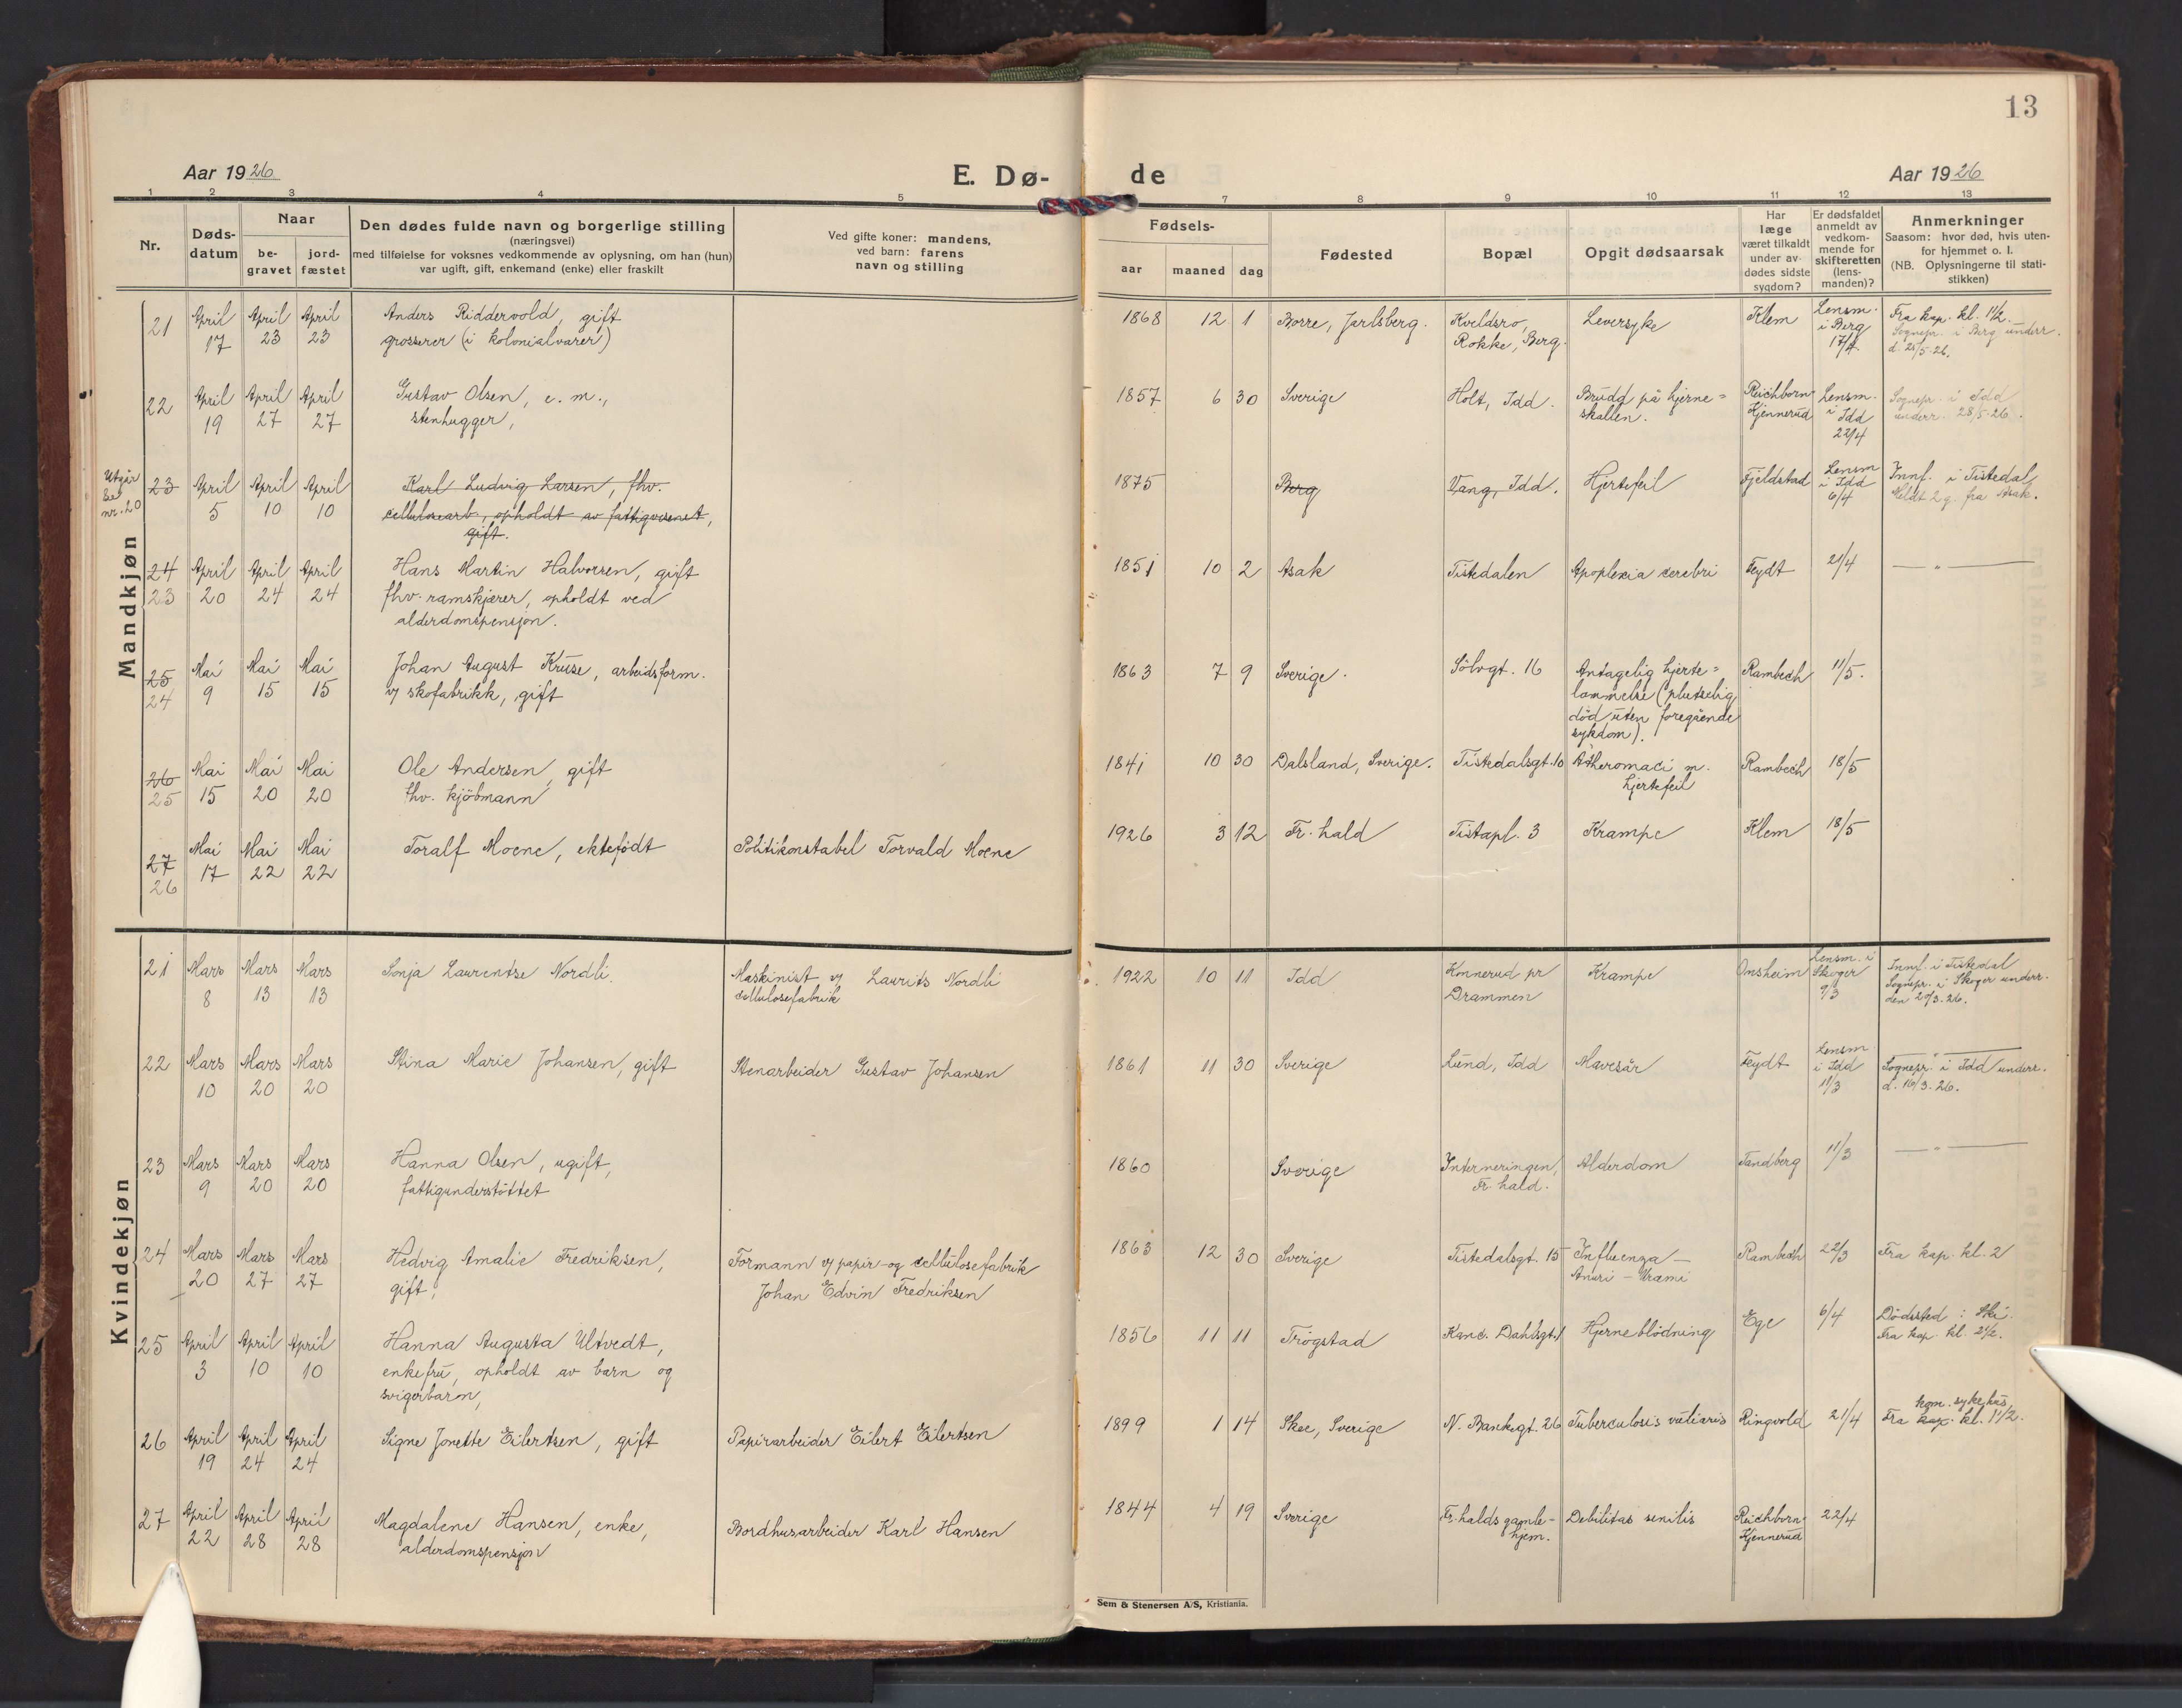 13
Aar 1926
E. Dø-
de
Aar 1926
1 2 3 4 5 7 8 9 10 11 12 13
Nr.
Døds-
datum
Naar
be-
gravet
jord-
fæstet
Den dødes fulde navn og borgerlige stilling
(næringsvei)
med tilføielse for voksnes vedkommende av oplysning, om han (hun)
var ugift, gift, enkemand (enke) eller fraskilt
Ved gifte koner: mandens,
ved barn: farens
navn og stilling
Fødsels-
aar maaned dag
Fødested
Bopæl
Opgit dødsaarsak
Har
læge
været tilkaldt
under av-
dødes sidste
sygdom?
Er dødsfaldet
anmeldt av
vedkom-
mende for
skifteretten
(lens-
manden)?
Anmerkninger
Saasom: hvor død, hvis uten-
for hjemmet o. l.
(NB. Oplysningerne til stati-
stikken)
Mandkjøn
21
April 17
April 23
April 23
Anders Riddervold, gift
grosserer (i kolonialvarer)
1868 12 1
Borre, Jarlsberg.
Kveldsro,
Rokke, Berg.
Leversyke
Klem
Lensm.
i Berg
17/4
Fra kap. kl. 11½.
Sognepr. i Berg underr.
d. 28/5-26.
22
April 19
April 27
April 27
Gustav Olsen, e. m.,
stenhugger,
1857 6 30
Sverige
Holt, Idd.
Brudd på hjerne=
skallen.
Reichborn-
Kjennerud
Lensm.
i Idd
22/4
Sognepr. i Idd
underr. 28/5-26.
Utgår
Se
nr. 20
23
April 5
April 10
April 10
Karl Ludvig Larsen, fhv.
cellulosearb, opholdt av fattigvesenet,
gift.
1875
Berg
Vang, Idd.
Hjertefeil
Fjeldstad
Lensm
i Idd
6/4
Innf. i Tistedal
Meldt 2 g. fra Asak.
24
23
April 20
April 24
April 24
Hans Martin Halvorsen, gift
fhv. ramskjærer, opholdt ved
alderdomspensjon.
1851 10 2
Asak
Tistedalen
Apoplexia cerebri
Feydt
21/4
— " —
25
24
Mai 9
Mai 15
Mai 15
Johan August Kruse, arbeidsform.
v/ skofabrikk, gift
1863 7 9
Sverige.
Sölvgt. 16
Antagelig hjerte=
lammelse (plutselig
död uten foregående
sykdom).
Rambech
11/5.
26
25
Mai 15
Mai 20
Mai 20
Ole Andersen, gift
fhv. kjöbmann
1841 10 30
Dalsland, Sverige.
Tistedalsgt. 10
Atheromaci m.
hjertefeil
Rambech
18/5
27
26
Mai 17
Mai 22
Mai 22
Toralf Moene, ektefödt
Politikonstabel Torvald Moene
1926 3 12
Fr. hald
Tistapl. 3
Krampe
Klem
18/5
Kvindekjøn
21
Mars 8
Mars 13
Mars 13
Sonja Laurentse Nordli.
Maskinist v/ Laurits Nordli
cellulosefabrik
1922 10 11
Idd
Konnerud pr
Drammen
Krampe
Onsheim
Lensm. i
Skoger
9/3
Innf. i Tistedal
Sognepr. i Skoger underr.
22
Mars 10
Mars 20
Mars 20
Stina Marie Johansen, gift
Stenarbeider Gustav Johansen
1861 11 30
Sverige
Lund, Idd
Mavesår
Feydt
Lensm
i Idd
11/3
— " —
Sognepr. i Idd underr.
d. 16/3-26.
23
Mars 9
Mars 20
Mars 20
Hanna Olsen, ugift,
fattigunderstöttet
1860
Sverige
Interneringen,
Fr. hald.
Alderdom
Tandberg
11/3
— " —
24
Mars 20
Mars 27
Mars 27
Hedvig Amalie Fredriksen,
gift,
Formann v/ papir-og cellulosefabrik
Johan Edvin Fredriksen
1863 12 30
Sverige
Tistedalsgt. 15
Influenza —
Anuri — Uræmi
Rambech
22/3
Fra kap. kl. 2
25
April 3
April 10
April 10
Hanna Augusta Ultvedt,
enkefru, opholdt av barn og
svigerbarn,
1856 11 11
Trögstad
Kanc. Dahlsgt. 1
Hjerneblödning
Ege
6/4
Dödssted i Ski.
Fra kap. kl. 2½.
26
April 19
April 24
April 24
Signe Jonette Eilertsen, gift
Papirarbeider Eilert Eilertsen
1899 1 14
Skee, Sverige
N. Bankegt. 26
Tuberculosis miliaris
Ringvold
21/4
kom. sykehus
Fra kap. kl. 1½.
27
April 22
April 28
April 28
Magdalene Hansen, enke,
alderdomspensjon
Bordhusarbeider Karl Hansen
1844 4 19
Sverige
Fr. halds gamle-
hjem.
Debilitas senilis
Reichborn-
Kjennerud
22/4
Sem & Stenersen A/S, Kristiania.